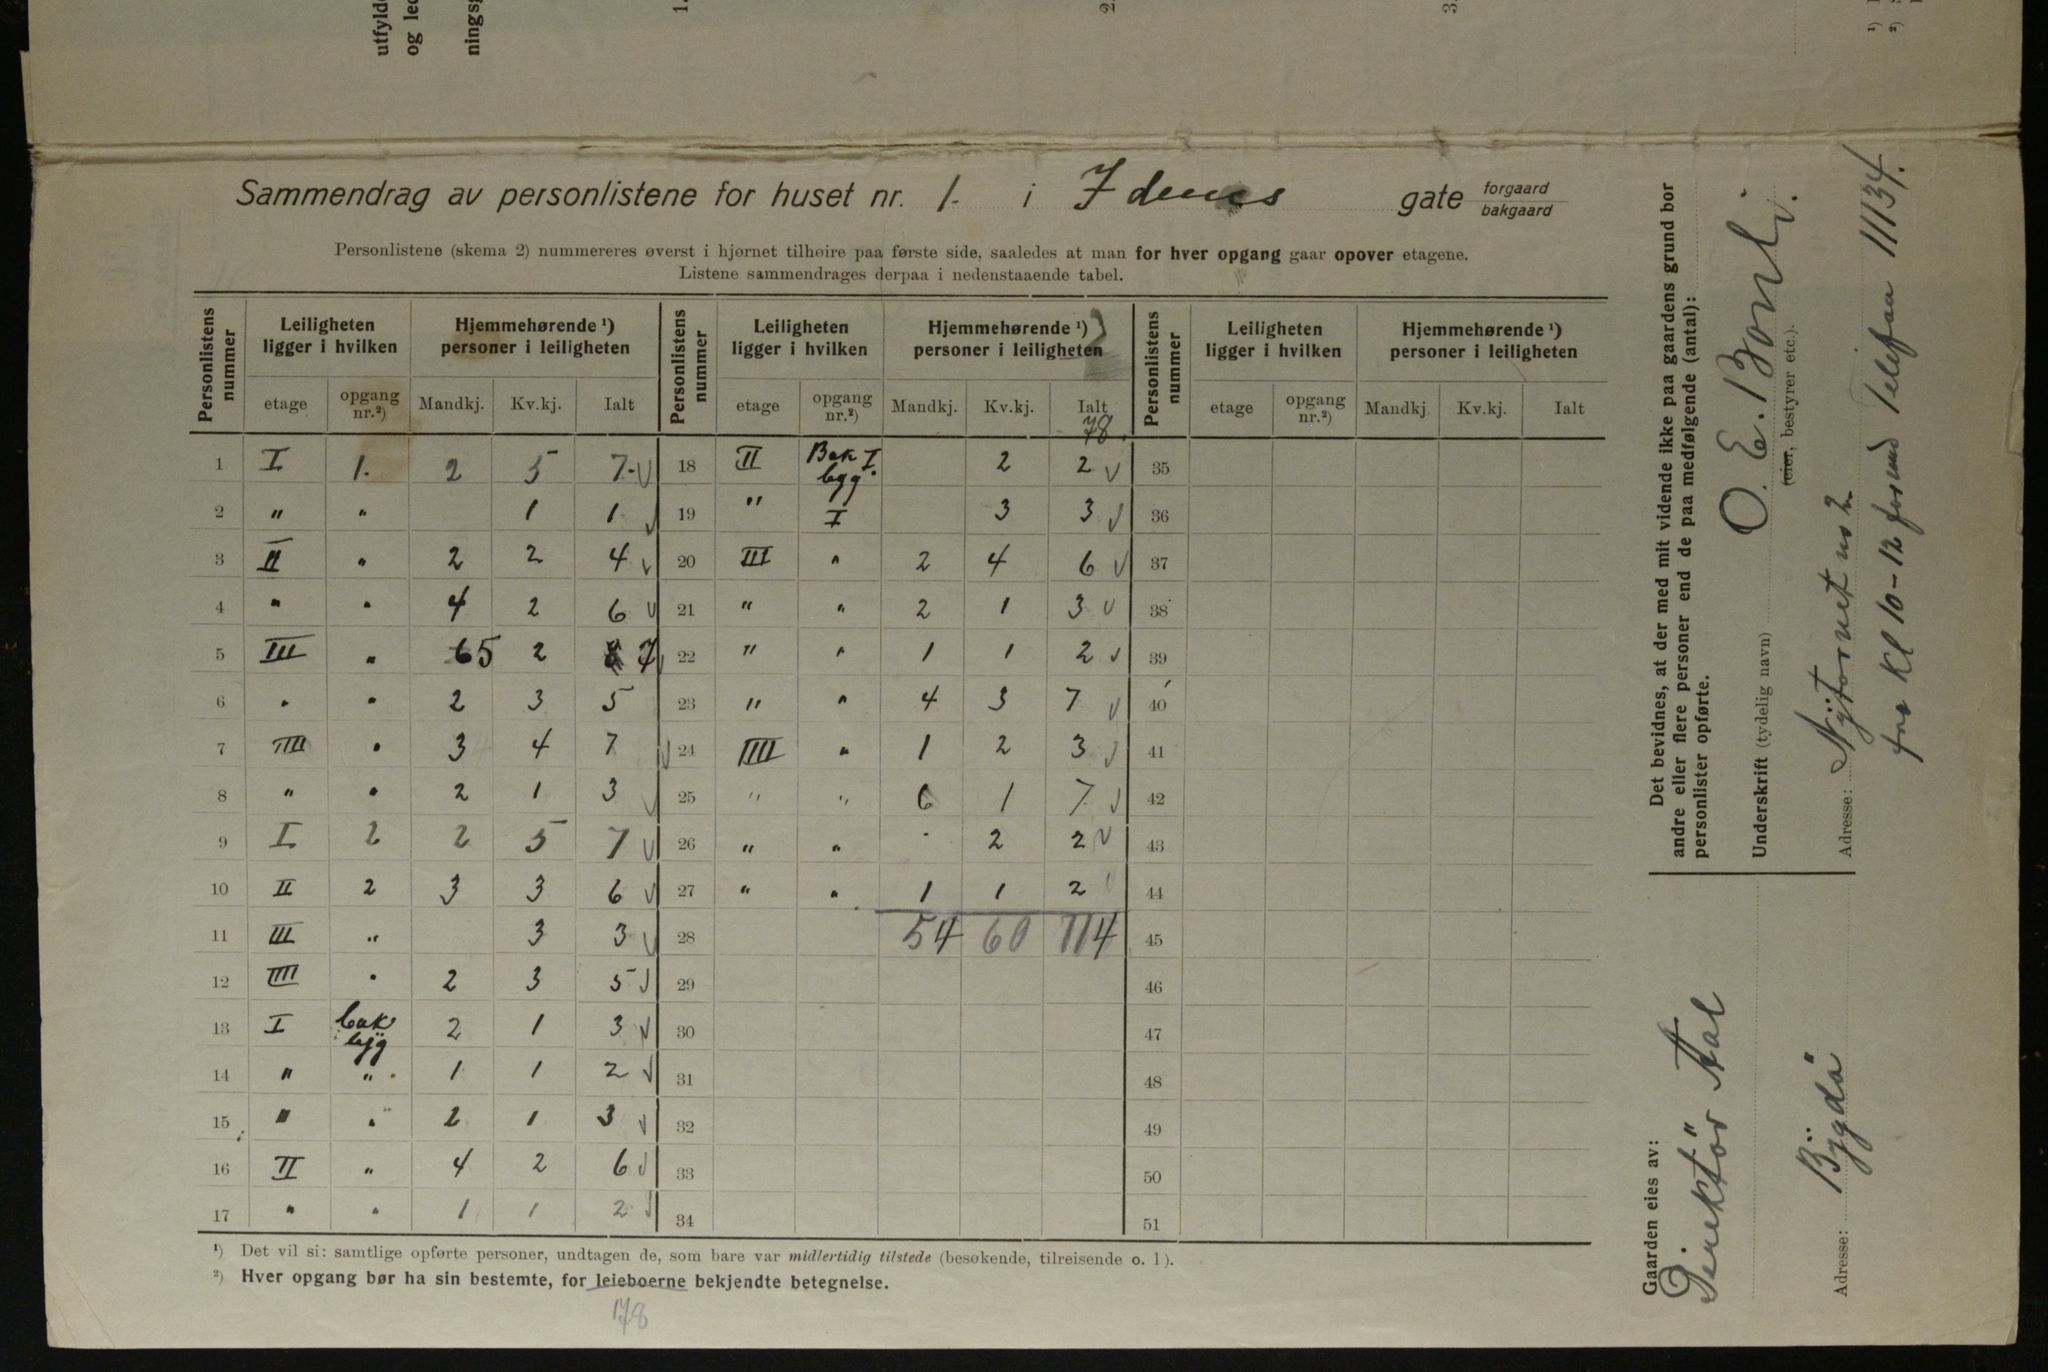 utfylde
og led
nings
1.
2.
3.
Sammendrag av personlistene for huset nr. 1. i Idunns gate forgaard bakgaard
Personlistene (skema 2) nummereres øverst i hjørnet tilhøire paa første side, saaledes at man for hver opgang gaar opover etagene.
Listene sammendrages derpaa i nedenstaaende tabel.
Personlistens nummer | Leiligheten ligger i hvilken | Hjemmehørende ¹) personer i leiligheten | Personlistens nummer | Leiligheten ligger i hvilken | Hjemmehørende ¹) personer i leiligheten | Personlistens nummer | Leiligheten ligger i hvilken | Hjemmehørende ¹) personer i leiligheten
etage | opgang nr.²) | Mandkj. | Kv.kj. | Ialt | etage | opgang nr.²) | Mandkj. | Kv.kj. | Ialt | etage | opgang nr.²) | Mandkj | Kv.kj. | Ialt
78.
1 I 1. 2 5 7- √ 18 II Bak bygg. I 2 2 √ 35
2 " " 1 1 √ 19 " I 3 3 √ 36
3 II " 2 2 4 √ 20 III " 2 4 6 √ 37
4 " " 4 2 6 √ 21 " " 2 1 3 √ 38
5 III " 6 5 2 8 7 √ 22 " " 1 1 2 √ 39
6 " " 2 3 5 23 " " 4 3 7 √ 40
7 IIII " 3 4 7 √ 24 IIII " 1 2 3 √ 41
8 " " 2 1 3 √ 25 " " 6 1 7 √ 42
9 I 2 2 5 7 √ 26 " " 2 2 √ 43
10 II 2 3 3 6 √ 27 " " 1 1 2 44
11 III " 3 3 √ 28 54 60 114 45
12 IIII " 2 3 5 √ 29 46
13 I bak byg 2 1 3 √ 30 47
14 " " 1 1 2 √ 31 48
15 " " 2 1 3 √ 32 49
16 II " 4 2 6 √ 33 50
17 " " 1 1 2 √ 34 51
¹) Det vil si: samtlige opførte personer, undtagen de, som bare var midlertidig tilstede (besøkende, tilreisende o. l).
²) Hver opgang bør ha sin bestemte, for leieboerne bekjendte betegnelse.
178
Det bevidnes, at der med mit vidende ikke paa gaardens grund bor
andre eller flere personer end de paa medfølgende (antal):
personlister opførte.
Underskrift (tydelig navn) O. E. Bonli.
(eier, bestyrer etc.).
Adresse: Nÿtorvet no 2
fra Kl 10-12 form Telefon 11134.
Gaarden eies av:
Direktör Aal
Adresse: Bÿgdö